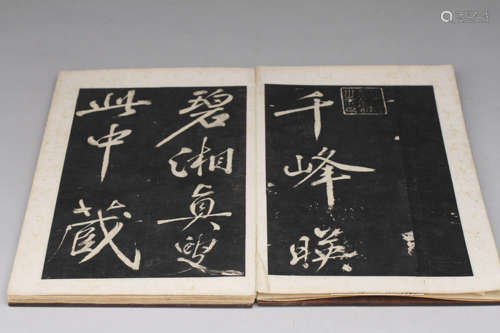 千峰暎
碧湘真叟
此中藏